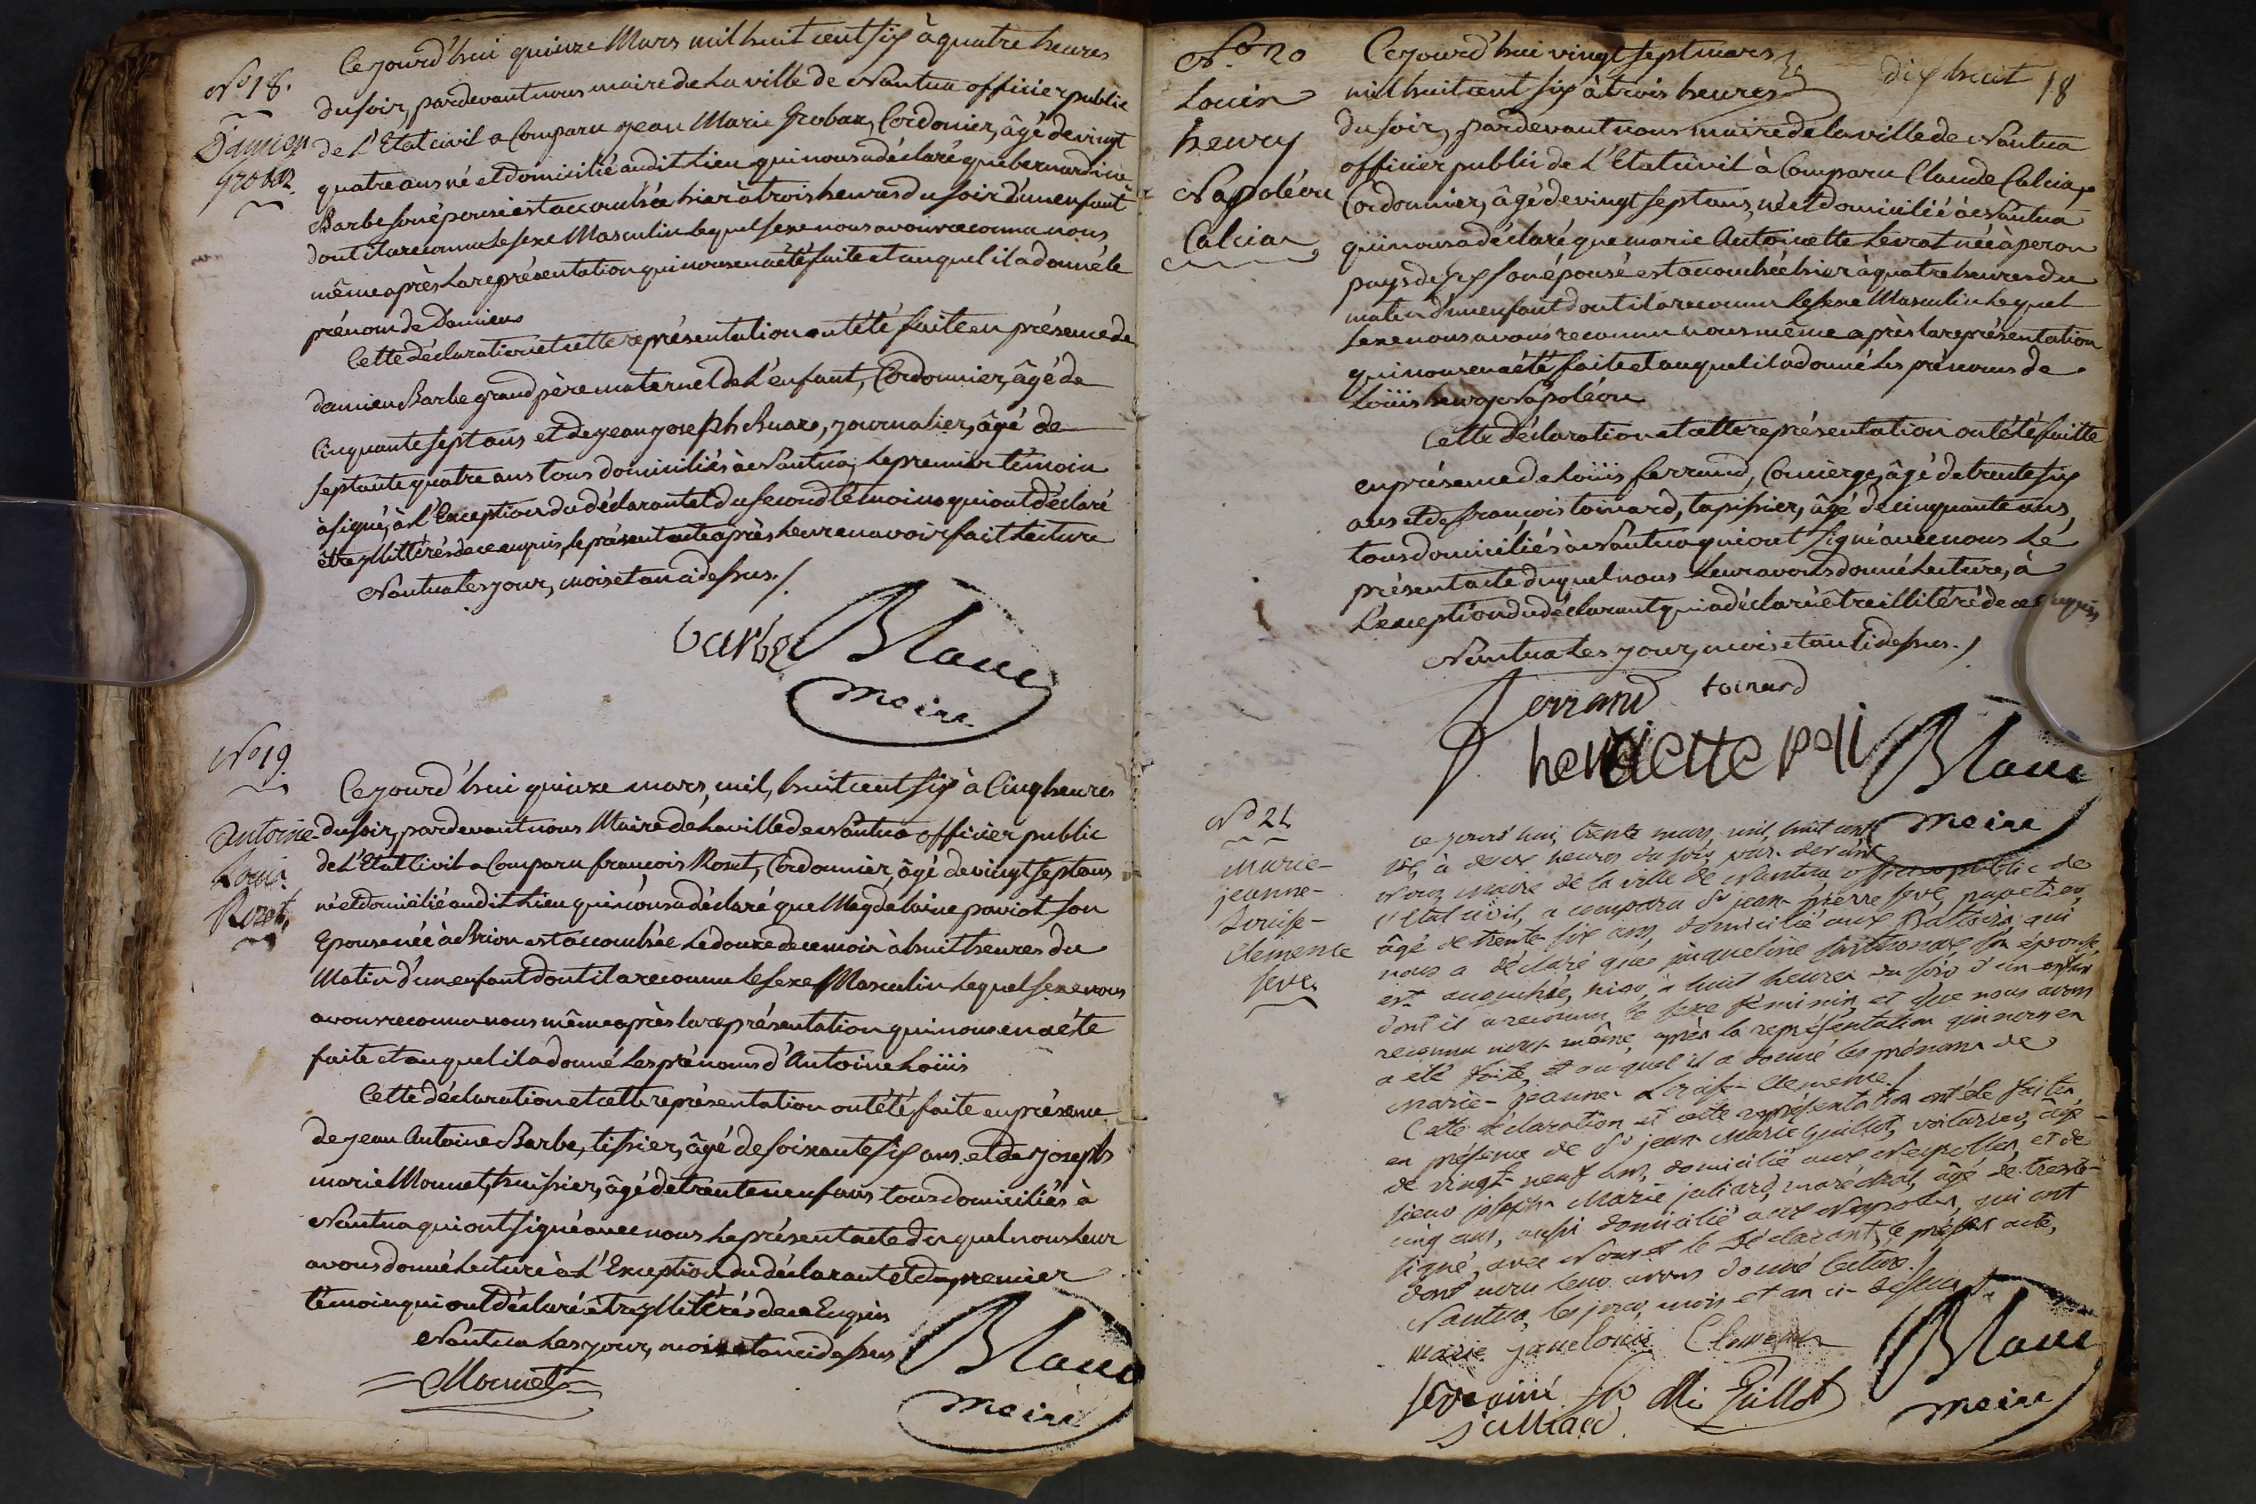 No 18.
Damien
grobaz
Ce yourd'hui quinze Mars mil huit cent six à quatre heures
du soir, par devant nous maire de La ville de Nantua officier public
de L'Etat civil a Comparu yean Marie Grobax, Cordonier, âgé de vingt
quatre ans né et domicilié audit Lieu qui nous a déclaré que bernardine
Barbe son épouse est accouchée hier à trois heures du soir d'un enfant
dont il a reconnu Le sexe Masculin Lequel sexe nous avons reconnu nous
même après La représentation qui nous en a été faite et auquel il a donné le
prénom de Damien
Cette déclaration et cette représentation ont été faite en présence de
damien Barbe grand père maternel de L'enfant, Cordonnier, âgé de
Cinquante sept ans et de yean yoseph Ruaz, yournalier, âgé de
septante quatre ans tous domiciliés à Nantua, Le premier témoin
à signé, à L'Exception du déclarant et du second témoins qui ont déclaré
être yllittérés de ce enquis, le présent acte après Leur en avoir fait Lecture
Nantua Les your, mois et an ci dessus ./
barbe Blanc
maire
No 19
Antoine
Louis
Rozet
Ce yourd'hui quinze mars, mil, huit cent six à Cinq heures
du soir, par devant nous Maire de La ville de Nantua officier public
de L'Etat Civil a Comparu francois Rozet, Cordonnier, âgé de vingt sept ans
né et domicilié audit Lieu qui nous a déclaré que Magdelaine paviot son
Epouse née à Brion est accouchée Le douze de ce mois à huit heures du
Matin d'un enfant dont il a reconnu Le sexe Masculin Lequel sexe nous
avons reconnu nous même après la représentation qui nous en a été
faite et auquel il a donné Les prénoms d'Antoine Loüis
Cette déclaration et cette représentation ont été faite en présence
de yean Antoine Barbe, tissier, âgé de soixante six ans et de yoseph
marie Monnet, huissier, âgé de trente neuf ans tous domiciliés à
Nantua qui ont signé avec nous Le présent acte duquel nous Leur
avons donné Lecture à L'Exception du déclarant et du premier
témoin qui ont déclaré être yllitérés de ce Enquis
Nantua Les your, mois et an ci dessus
Monnet Blanc
maire
No. 20
Louis
henry
Napoléon
Calcia
dix huit 18
Ce yourd'hui vingt sept mars
mil huit cent six à trois heures
du soir, par devant nous maire de la ville de Nantua
officier public de L'Etat civil à Comparu Claude Calcia,
Cordonnier, âgé de vingt sept ans, né et domicilié à Nantua
qui nous a déclaré que marie Antoinette Levrat née à peron
pays de Gex son épouse est accouchée hier à quatre heures du
matin d'un enfant dont il a reconnu Le sexe Masculin Lequel
sexe nous avons reconnu nous même après la représentation
qui nous en a été faite et auquel il a donné Les prénoms de
Loüis henry Napoléon
Cette déclaration et cette représentation ont été faitte
en présence de Loüis ferrand, Concierge, âgé de trente six
ans et de francois toinard, tapissier, âgé de cinquante ans,
tous domiciliés à Nantua qui ont signé avec nous Le
présent acte duquel nous Leur avons donné Lecture, à
L'exception du déclarant qui a déclaré être illitéré de ce enquis
Nantua Les your, mois et an ci dessus ./
ferrand toinard
henriette poli Blanc
maire
No 21
Marie-
jeanne-
Louise-
Clemence
seve
ce jourd'hui, trente mars, mil, huit cent
six, à deux heures du soir, par devant
Nous Maire de la ville de Nantua officier public de
l'Etat civil, a comparu Sr jean-pierre seve, papetier,
âgé de trente six ans, domicilié aux Battoirs, qui
nous a déclaré que jaqueline son épouse
est accouchée, hier, à huit heures du soir d'un enfant
dont il a reconnu le sexe féminin, et que nous avons
reconnu nous même, après la représentation qui nous en
a été faite, et auquel il a donné les prénoms de
Marie-jeanne Louise Clemence./
Cette déclaration et cette représentation ont été faites
en présence de Sr jean-Marie Guillot, voiturier, âgé
de vingt-neuf ans, domicilié aux Neyrolles, et de
sieur joseph Marie juliard, maréchal, âgé de trente-
cinq ans, aussi domicilié aux Neyrolles, qui ont
signé, avec Nous et le Déclarant, le présent acte,
dont nous leur avons donné lecture./
Nantua, les jour, mois et an ci-dessus./
marie jane louise Clemence
seve Guillot
julliard Blanc
maire